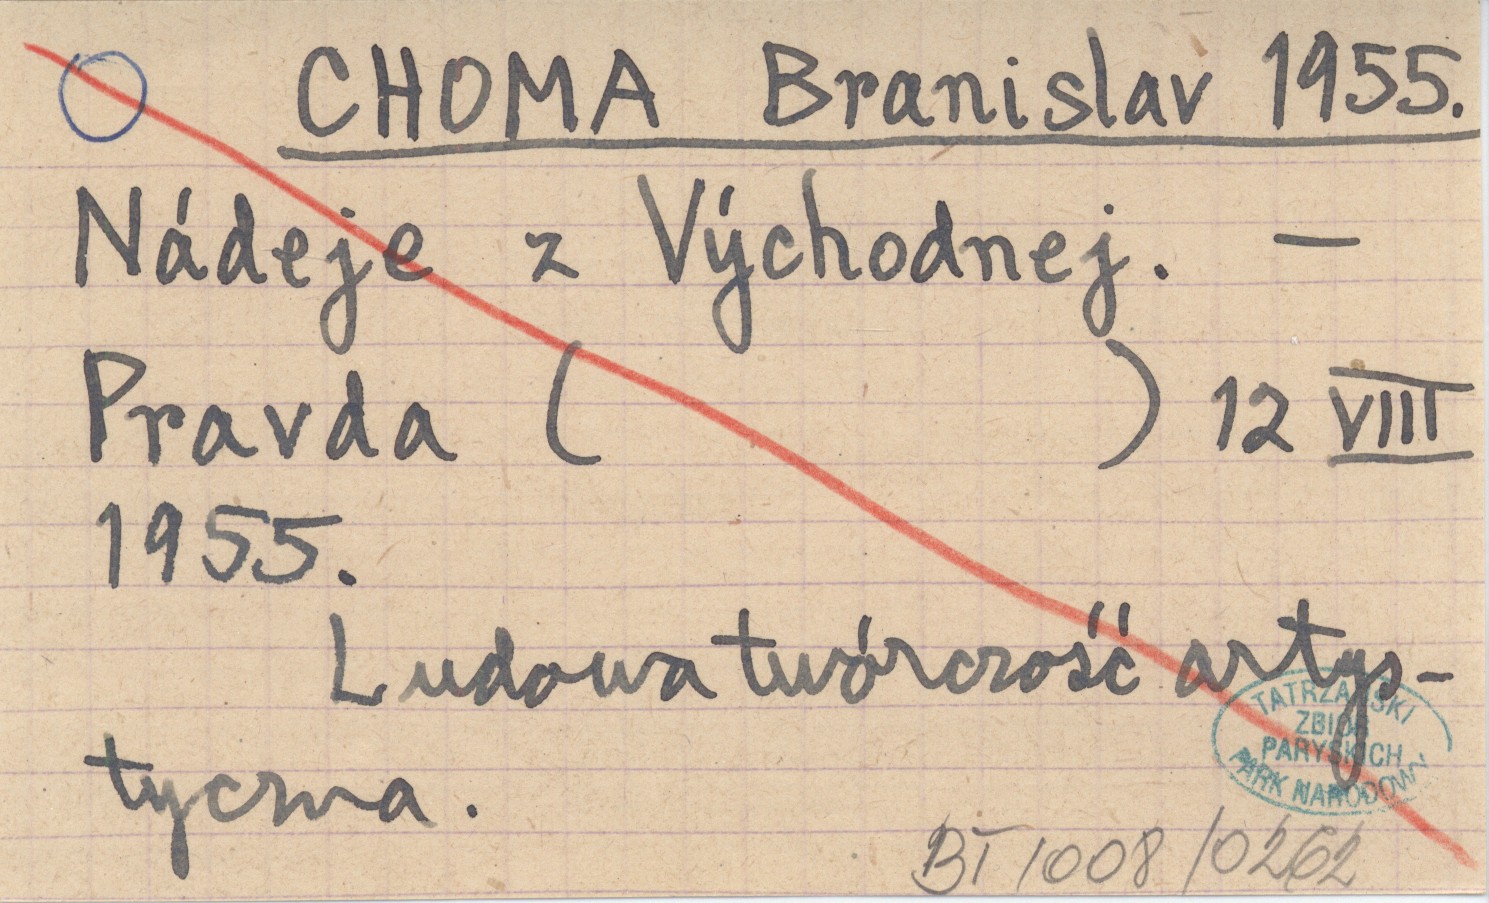 CHOMA Branislav 1955.
Nádeje z Východnej. —
Pravda ( ) 12 VIII
1955.
Ludowa twórczość artys-
tyczna.
TATRZAŃSKI
ZBIÓR
PARYSKICH
PARK NARODOWY
BT 1008/0262